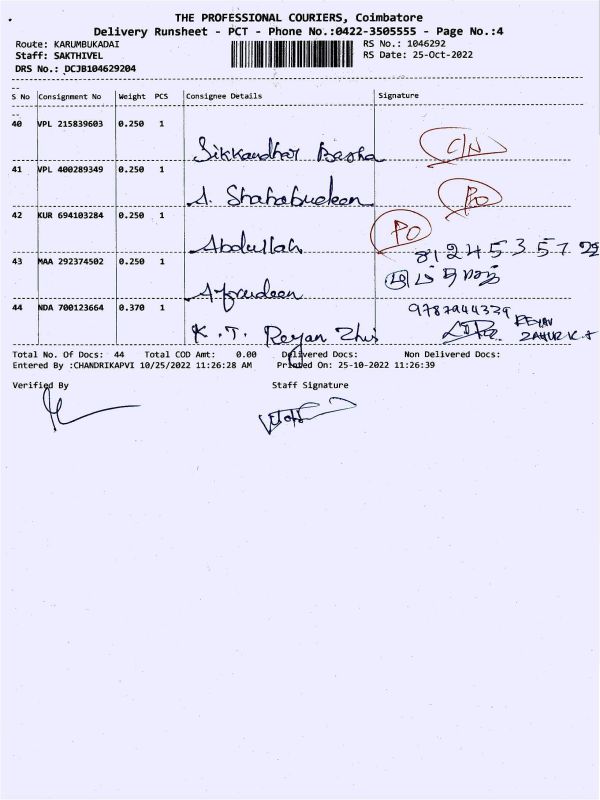 THE PROFESSIONAL COURIERS, Coimbatore
Delivery Runsheet - PCT - Phone No.:0422-3505555 - Page No.:4
Route: KARUMBUKADAI RS No.: 1046292
Staff: SAKTHIVEL RS Date: 25-Oct-2022
DRS No.: DCJB104629204
S No Consignment No Weight PCS Consignee Details Signature
40 VPL 215839603 0.250 1
Sikkandhar Basha C/N
41 VPL 400289349 0.250 1
A. Shahabudeen PO
42 KUR 694103284 0.250 1
Abdullah PO
43 MAA 292374502 0.250 1 8124535729
Afsrudeen
44 NDA 700123664 0.370 1 9787944339
K. T. Reyan REYAN
Total No. Of Docs: 44 Total COD Amt: 0.00 Delivered Docs: Non Delivered Docs:
Entered By :CHANDRIKAPVI 10/25/2022 11:26:28 AM Printed On: 25-10-2022 11:26:39
Verified By Staff Signature